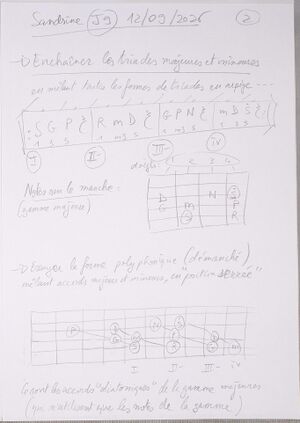 Sandrine J9 12/09/2025 2
→ Enchaîner les triades majeures et mineures
en mêlant toutes les formes de triades en arpège ----
S G P R m D G P N m D S
1 3 5 1 m3 5 1 m3 5 1 3 5
I II- III- IV
doigts: 1 2 3 4
Notes sur le manche:
(gamme majeure)
D m N S
G S P
R
→ Essayer la forme polyphonique (démanché),
mêlant accords majeurs et mineurs, en "position serrée"
I II- III- IV
Ce sont les accords "diatoniques" de la gamme majeure
(qui n'utilisent que les notes de la gamme)